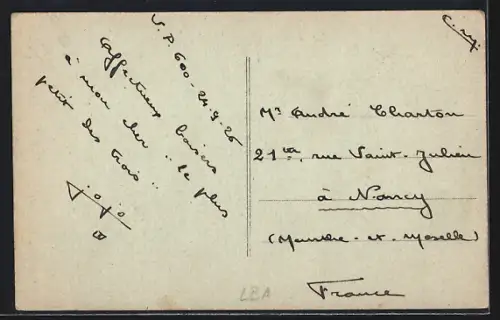 S.P. 600 - 24-9-26
Affectueux baisers
à mon cher "le plus
petit des trois"
jojo
Mr André Charton
21 rue Saint-Julien
à Nancy
(Meurthe-et-Moselle)
France
LBA